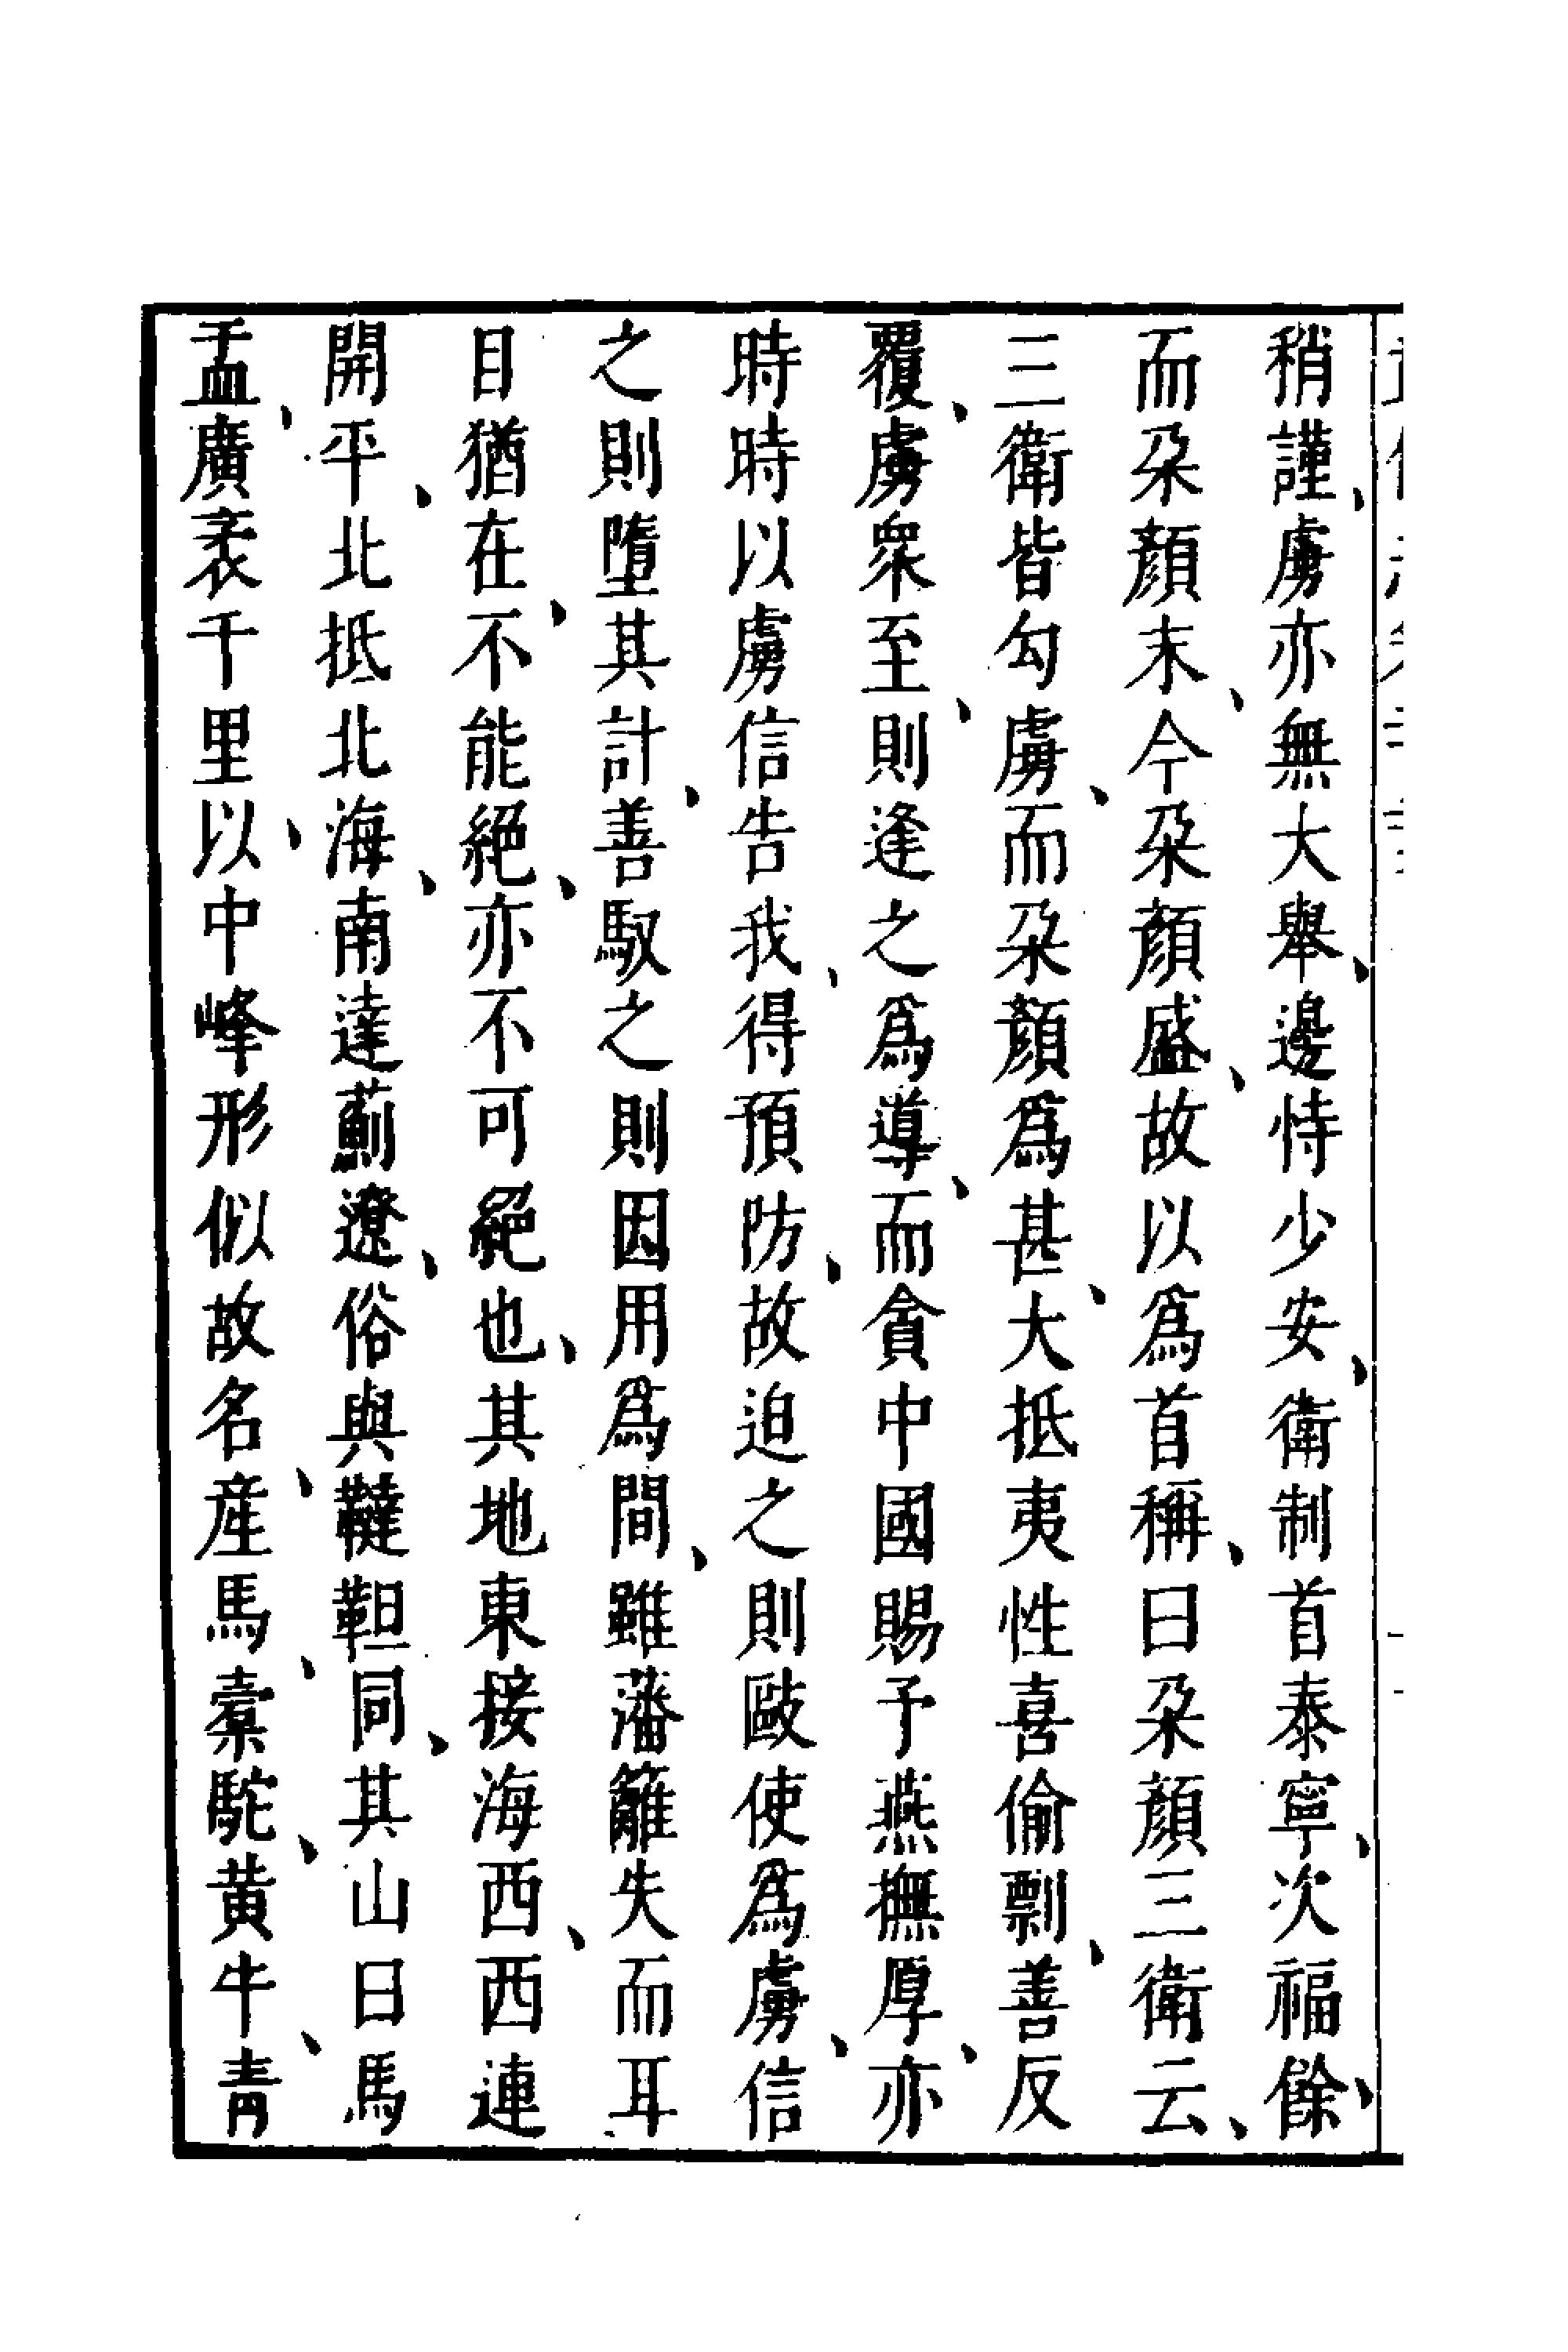 稍謹、虜亦無大舉、邊恃少安、衛制首泰寧、次福餘、
而朶顏末、今朶顏盛、故以爲首稱、曰朶顏三衛云、
三衛皆勾虜、而朶顏爲甚、大抵夷性喜偷剽、善反
覆、虜衆至、則逢之爲導、而貪中國賜予燕撫厚、亦
時時以虜信告我、得預防、故迫之則歐使爲虜、信
之則墮其計、善馭之則因用爲間、雖藩籬失而耳
目猶在、不能絕、亦不可絕也、其地東接海西、西連
開平、北抵北海、南達薊遼、俗與韃靼同、其山曰馬
盂、廣袤千里、以中峰形似故名、産馬、槖駝、黄牛、青